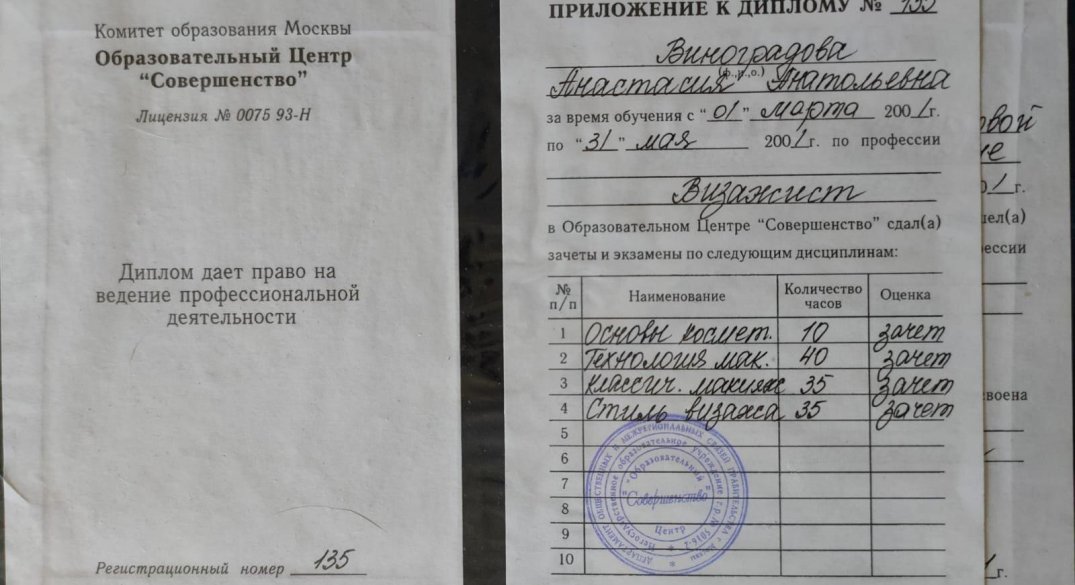 Комитет образования Москвы
Образовательный Центр
“Совершенство”
Лицензия № 0075 93-Н
Диплом дает право на
ведение профессиональной
деятельности
Регистрационный номер 135
ПРИЛОЖЕНИЕ К ДИПЛОМУ № 135
Виноградова
(ф.,и.,о.)
Анастасия Анатольевна
за время обучения с “01” марта 2001г.
по “31” мая 2001г. по профессии
Визажист
в Образовательном Центре “Совершенство” сдал(а)
зачеты и экзамены по следующим дисциплинам:
№ п/п Наименование Количество часов Оценка
1 Основы космет. 10 зачет
2 Технология мак. 40 зачет
3 Классич. макияж 35 зачет
4 Стиль визажа 35 зачет
5
6
7
8
9
10
"Образовательный
"Совершенство"
Центр
Негосударственное образовательное учреждение